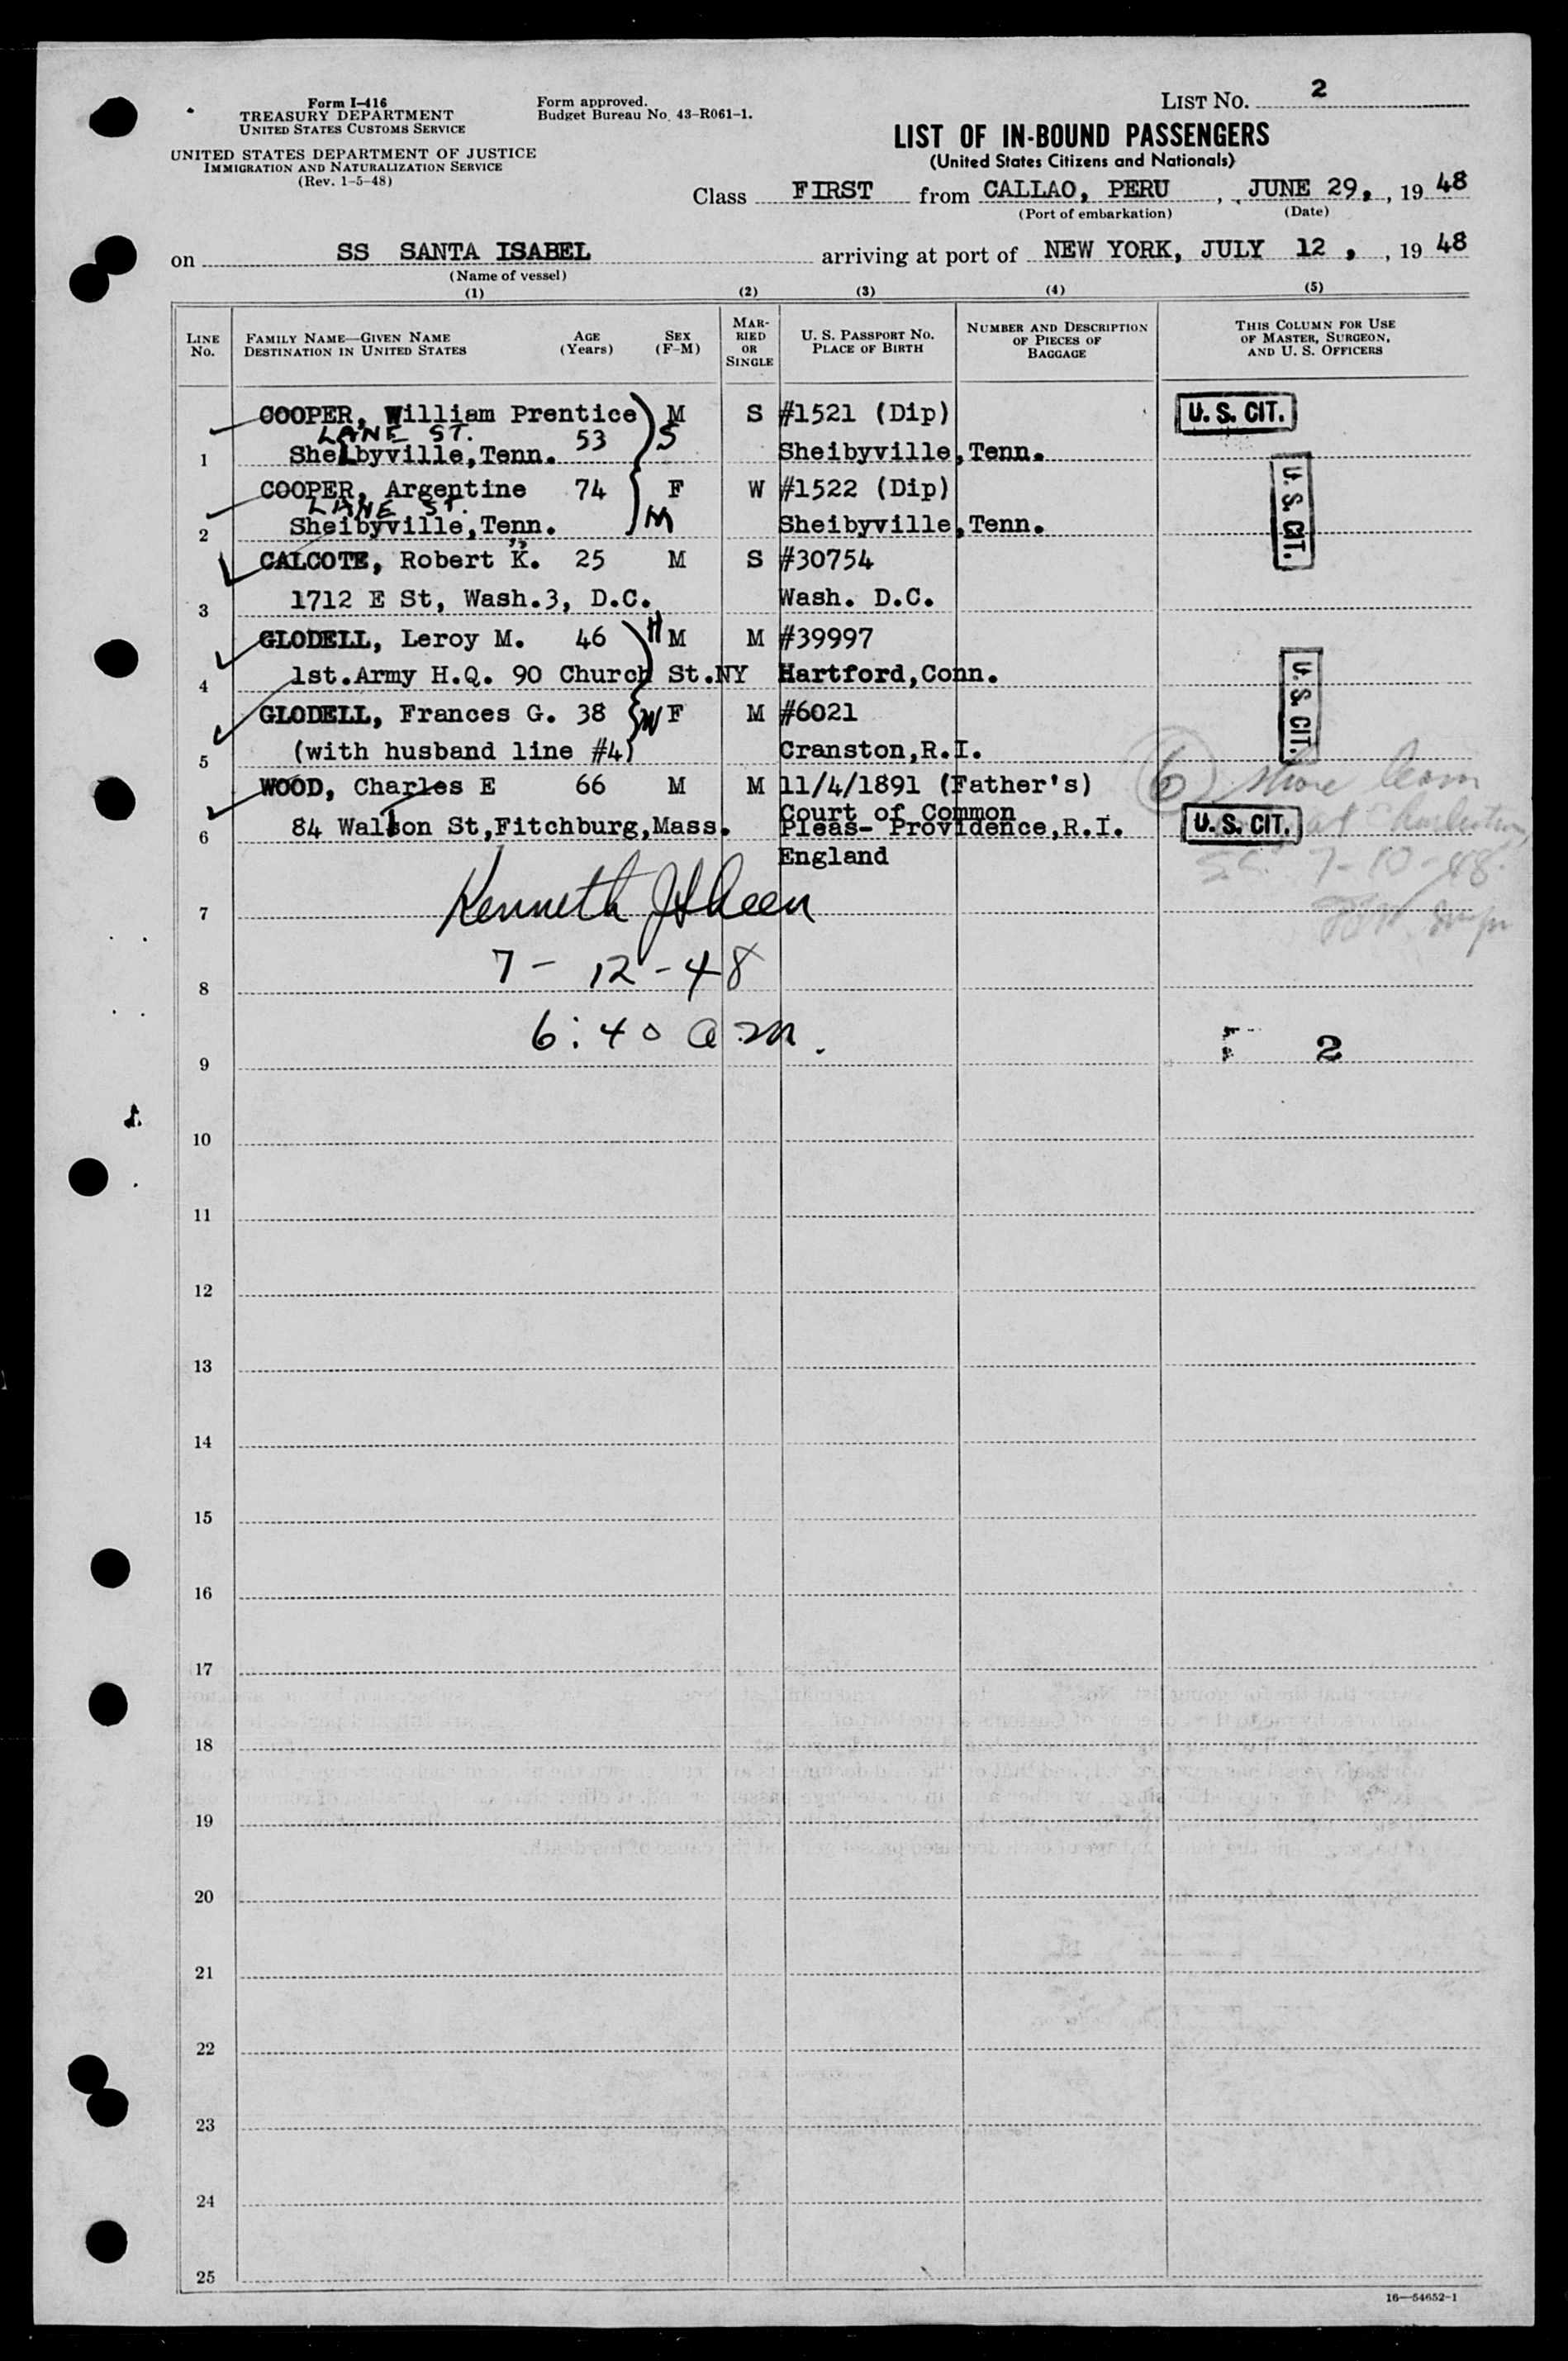 Form I-416
TREASURY DEPARTMENT
UNITED STATES CUSTOMS SERVICE
UNITED STATES DEPARTMENT OF JUSTICE
IMMIGRATION AND NATURALIZATION SERVICE
(Rev. 1-5-48)
Form approved.
Budget Bureau No. 43-R061-1.
LIST NO. 2
LIST OF IN-BOUND PASSENGERS
(United States Citizens and Nationals)
Class FIRST from CALLAO, PERU, JUNE 29, 19 48
(Port of embarkation) (Date)
on SS SANTA ISABEL arriving at port of NEW YORK, JULY 12, 19 48
(Name of vessel)
(1) (2) (3) (4) (5)
LINE NO.
FAMILY NAME—GIVEN NAME
DESTINATION IN UNITED STATES
AGE (Years)
SEX (F-M)
MARRIED OR SINGLE
U. S. PASSPORT NO.
PLACE OF BIRTH
NUMBER AND DESCRIPTION OF PIECES OF BAGGAGE
THIS COLUMN FOR USE OF MASTER, SURGEON, AND U. S. OFFICERS
COOPER, William Prentice M S #1521 (Dip) U. S. CIT.
LANE ST. 53 S
1 Shelbyville,Tenn. Sheibyville,Tenn.
COOPER, Argentine 74 F W #1522 (Dip) U. S. CIT.
LANE ST. M
2 Sheibyville,Tenn. Sheibyville,Tenn.
CALCOTE, Robert K. 25 M S #30754
3 1712 E St, Wash.3, D.C. Wash. D.C.
GLODELL, Leroy M. 46 H M M #39997 U. S. CIT.
4 1st.Army H.Q. 90 Church St.NY Hartford,Conn.
GLODELL, Frances G. 38 W F M #6021
5 (with husband line #4) Cranston,R.I.
WOOD, Charles E 66 M M 11/4/1891 (Father's) 6 shore leave
Court of Common
6 84 Walton St,Fitchburg,Mass. Pleas- Providence,R.I. U. S. CIT. at Charleston
England S.C. 7-10-48
7 Kenneth
8 7-12-48
9 6:40 a.m. 2
10
11
12
13
14
15
16
17
18
19
20
21
22
23
24
25
16—54652-1